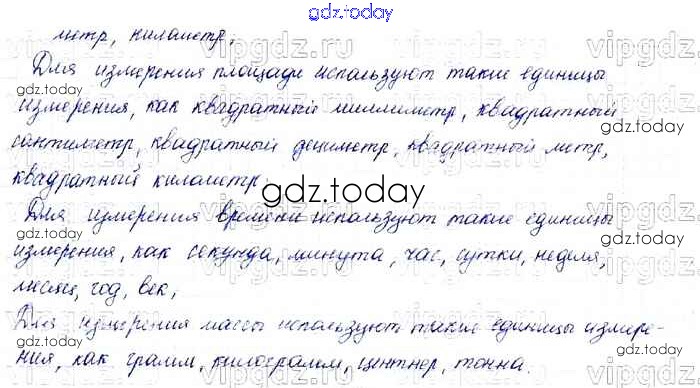 gdz.today
метр, километр,
Для измерения площади используют такие единицы
измерения, как квадратный миллиметр, квадратный
gdz.today
сантиметр, квадратный дециметр, квадратный метр,
gdz.today
квадратный километр.
gdz.today
Для измерения времени используют такие единицы
измерения, как секунда, минута, час, сутки, неделя,
gdz.today
месяц, год, век,
Для измерения массы используют такие единицы измере-
ния, как грамм, килограмм, центнер, тонна.
gdz.today
vipgdz.ru